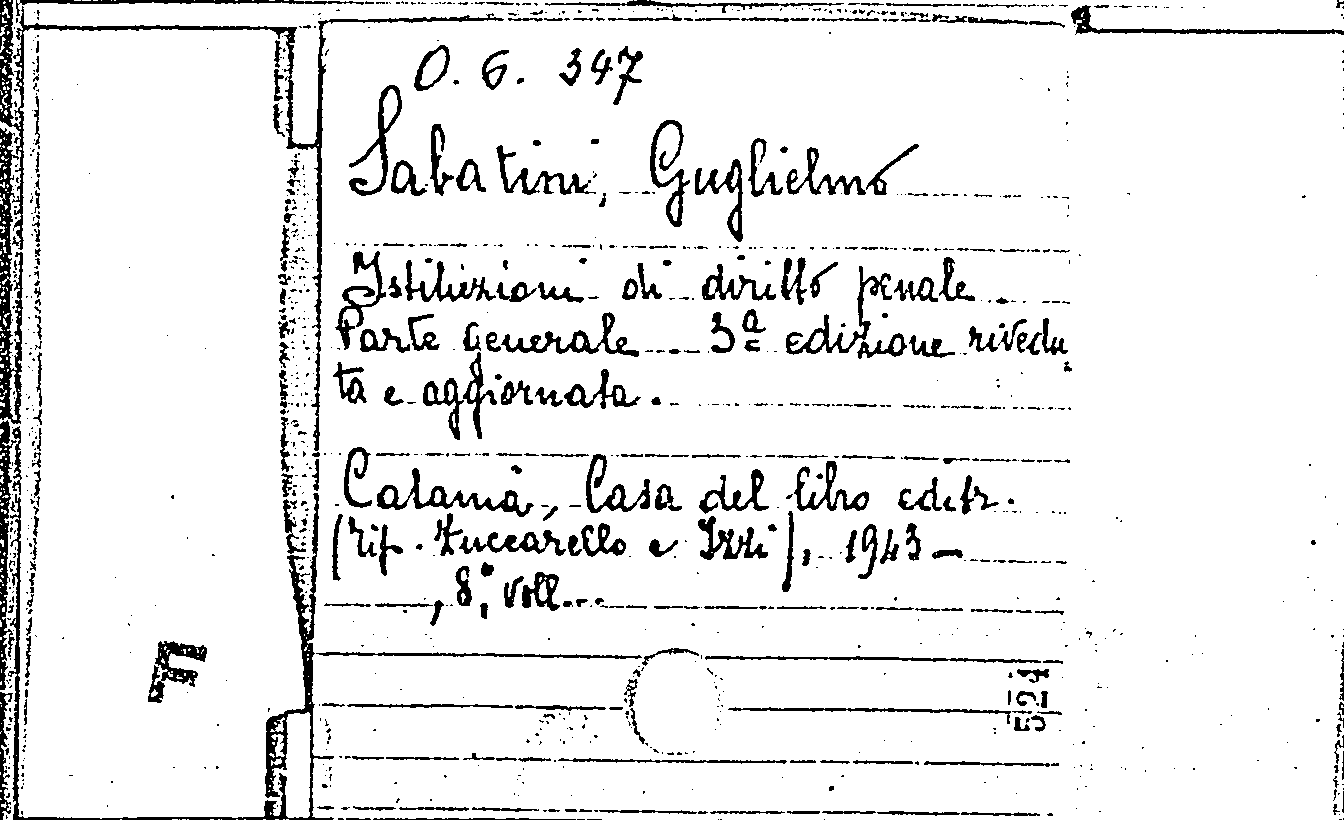 O. 6. 347
Sabatini, Guglielmo
Istituzioni di diritto penale.
Parte generale. 3ª edizione rivedu,
ta e aggiornata.
Catania, Casa del libro editr.
(tip. Zuccarello e Izzi), 1943 –
, 8°, voll...
524
F